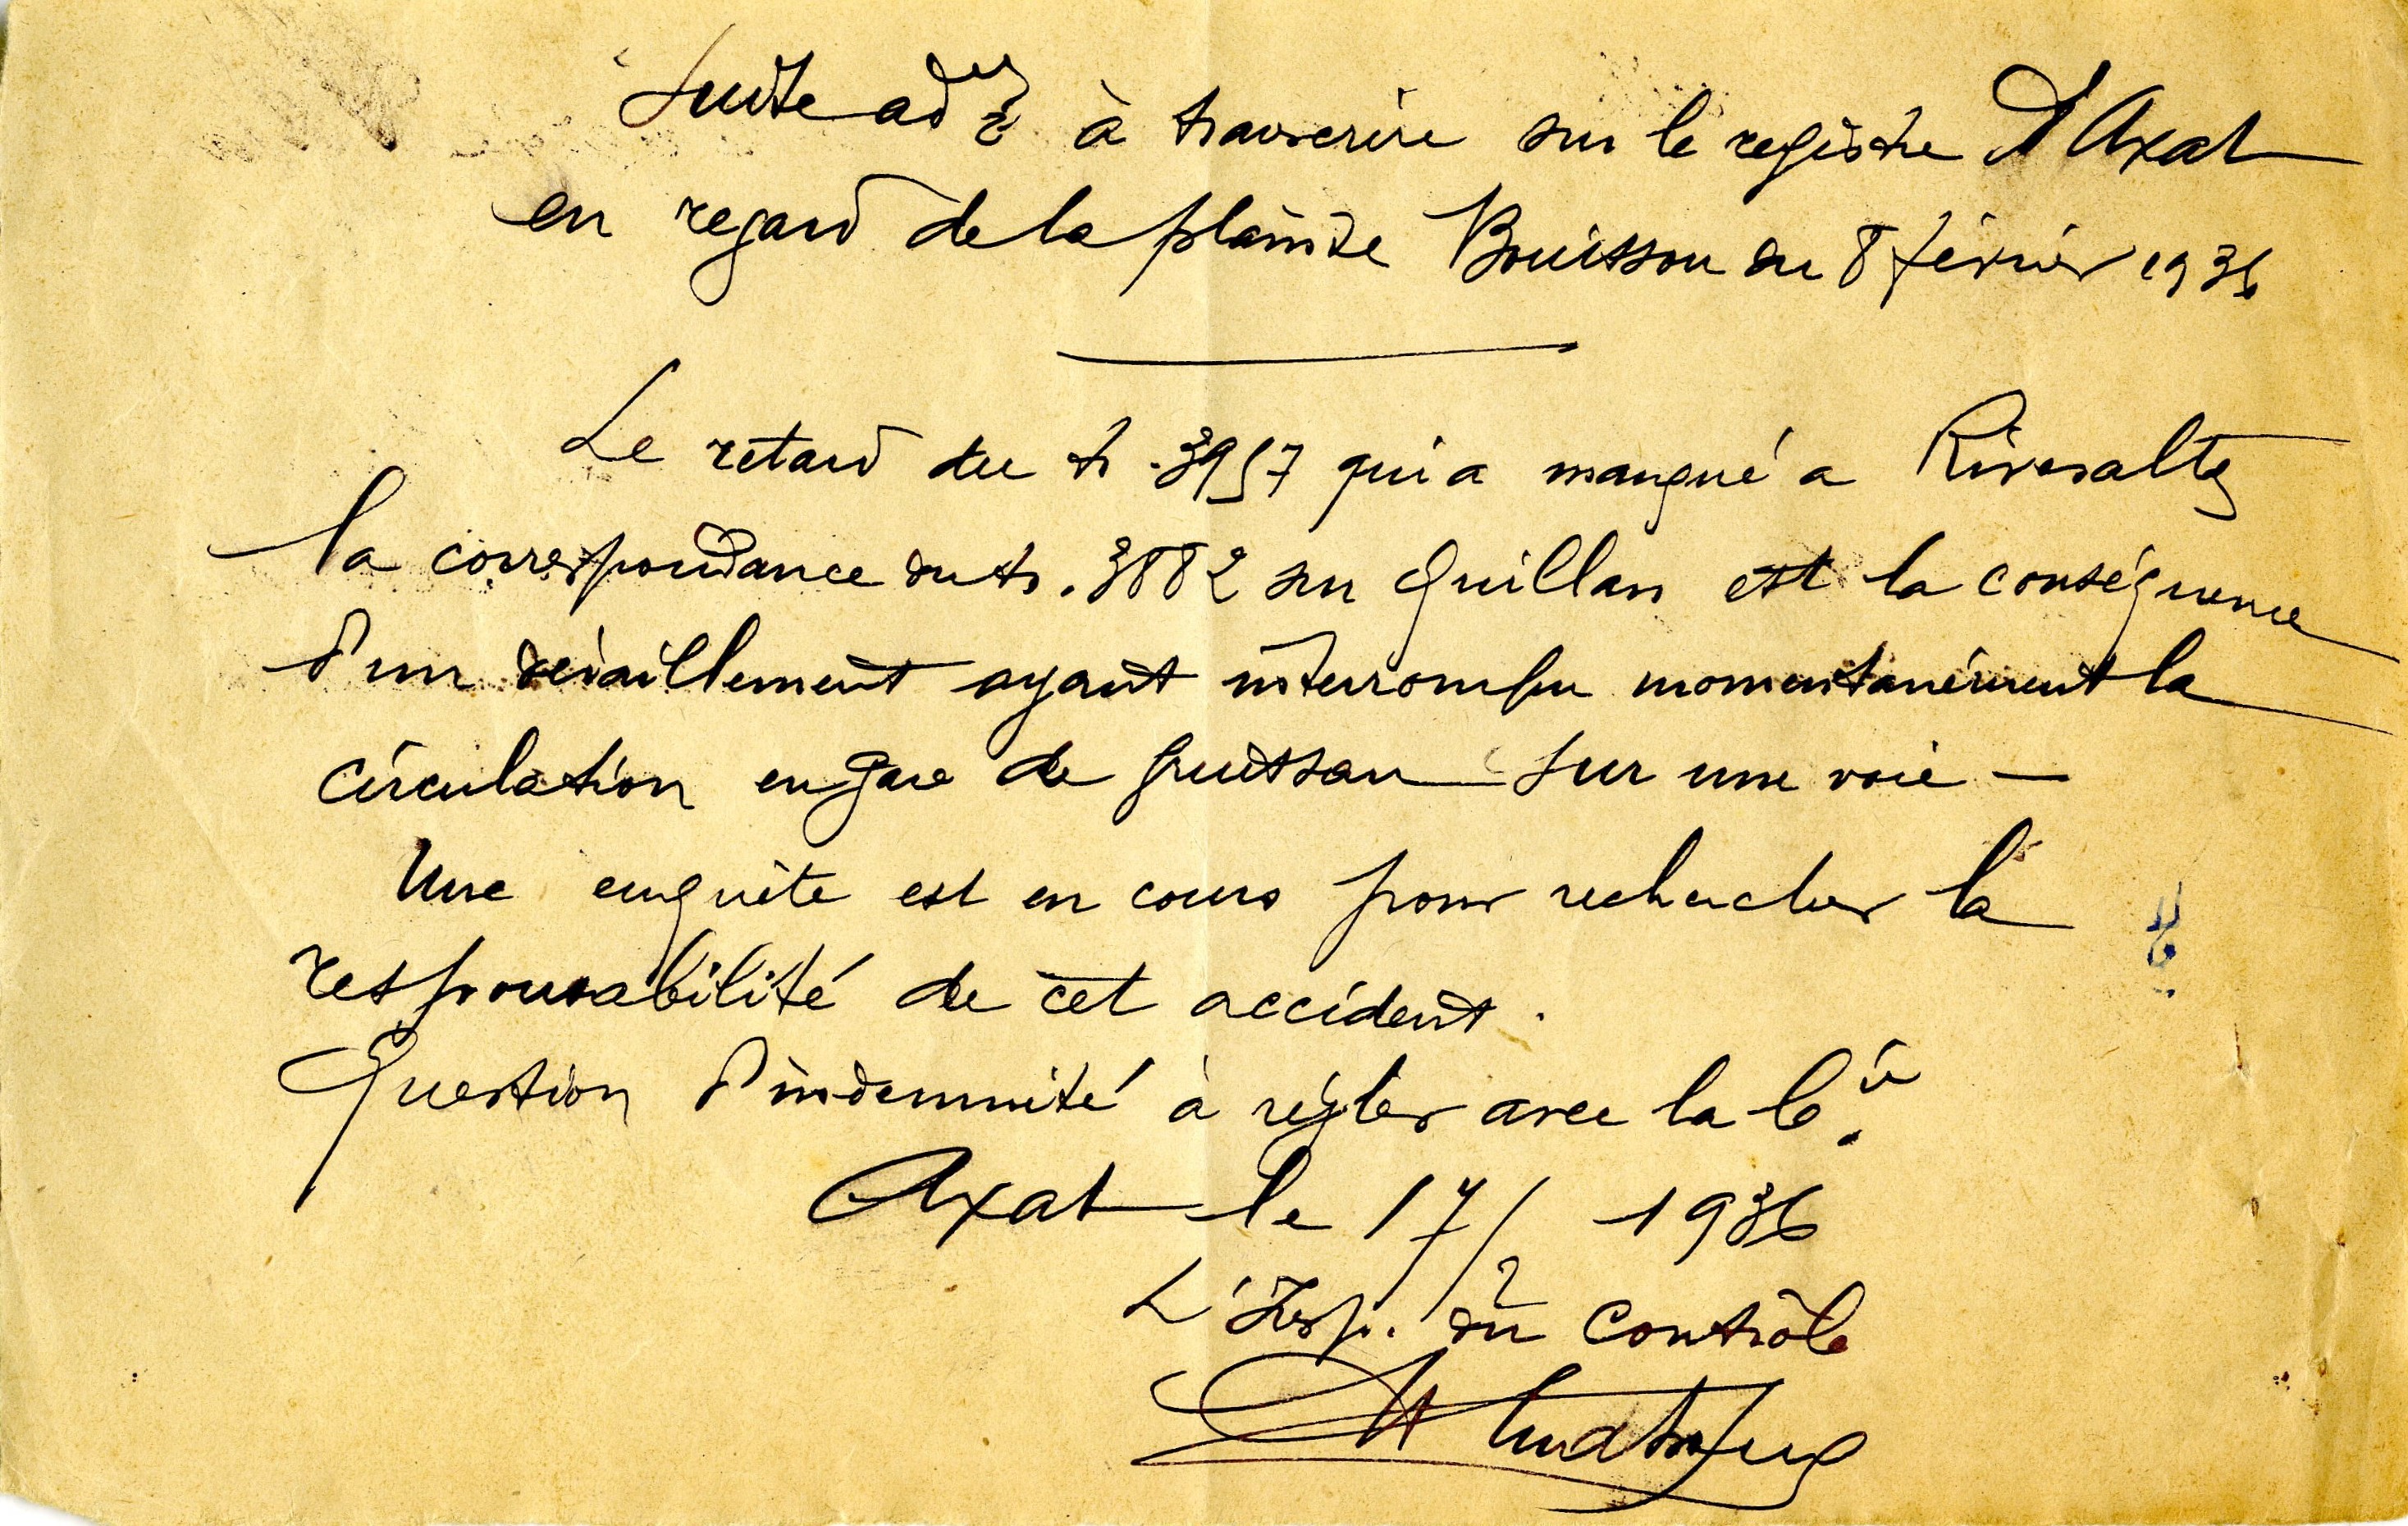 Suite à transcrire sur le registre d'Axat
en regard de la plainte Bouisson du 8 février 1936
Le retard du tr. 3957 qui a manqué a Rivesaltes
la correspondance du tr. 3882 sur Quillan est la conséquence
d'un déraillement ayant interrompu momentanément la
circulation en gare de Gruissan sur une voie —
Une enquête est en cours pour rechercher la
responsabilité de cet accident.
Question d'indemnité à régler avec la Cie.
Axat le 17/2 1936
L'Insp. du Contrôle